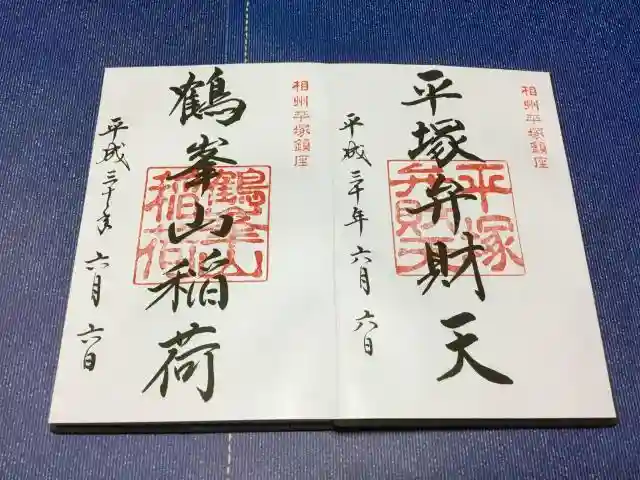 相州平塚鎮座
平塚弁財天
平塚
弁財天
平成三十年 六月 六日
相州平塚鎮座
鶴峯山稲荷
鶴峯山
稲荷
平成三十年 六月 六日